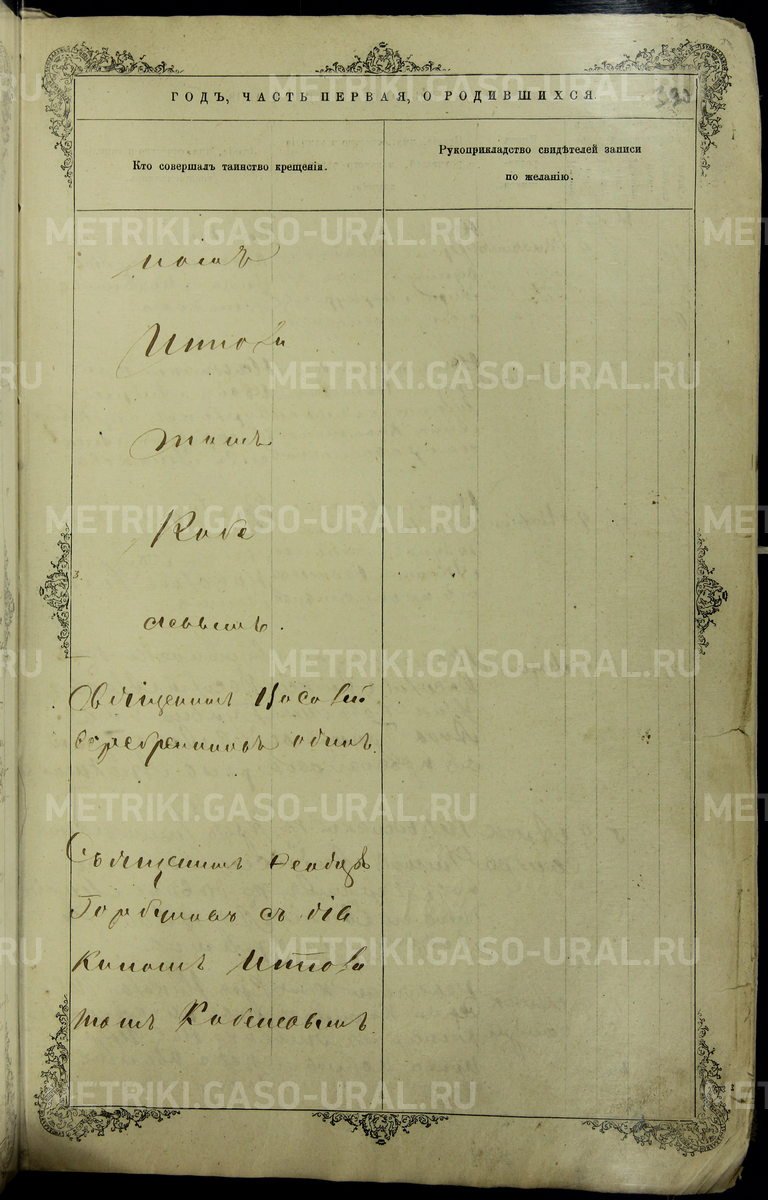 ГОДЪ, ЧАСТЬ ПЕРВАЯ, О РОДИВШИХСЯ.
390
Кто совершалъ таинство крещенія.
Рукоприкладство свидѣтелей записи
по желанію.
номъ
Иппо
томъ
Кобе
левымъ.
Священникъ
Серебренниковъ одинъ.
Священникъ Ѳеодоръ
Горбуновъ съ діа
кономъ Иппо
томъ Кобелевымъ.
METRIKI.GASO-URAL.RU